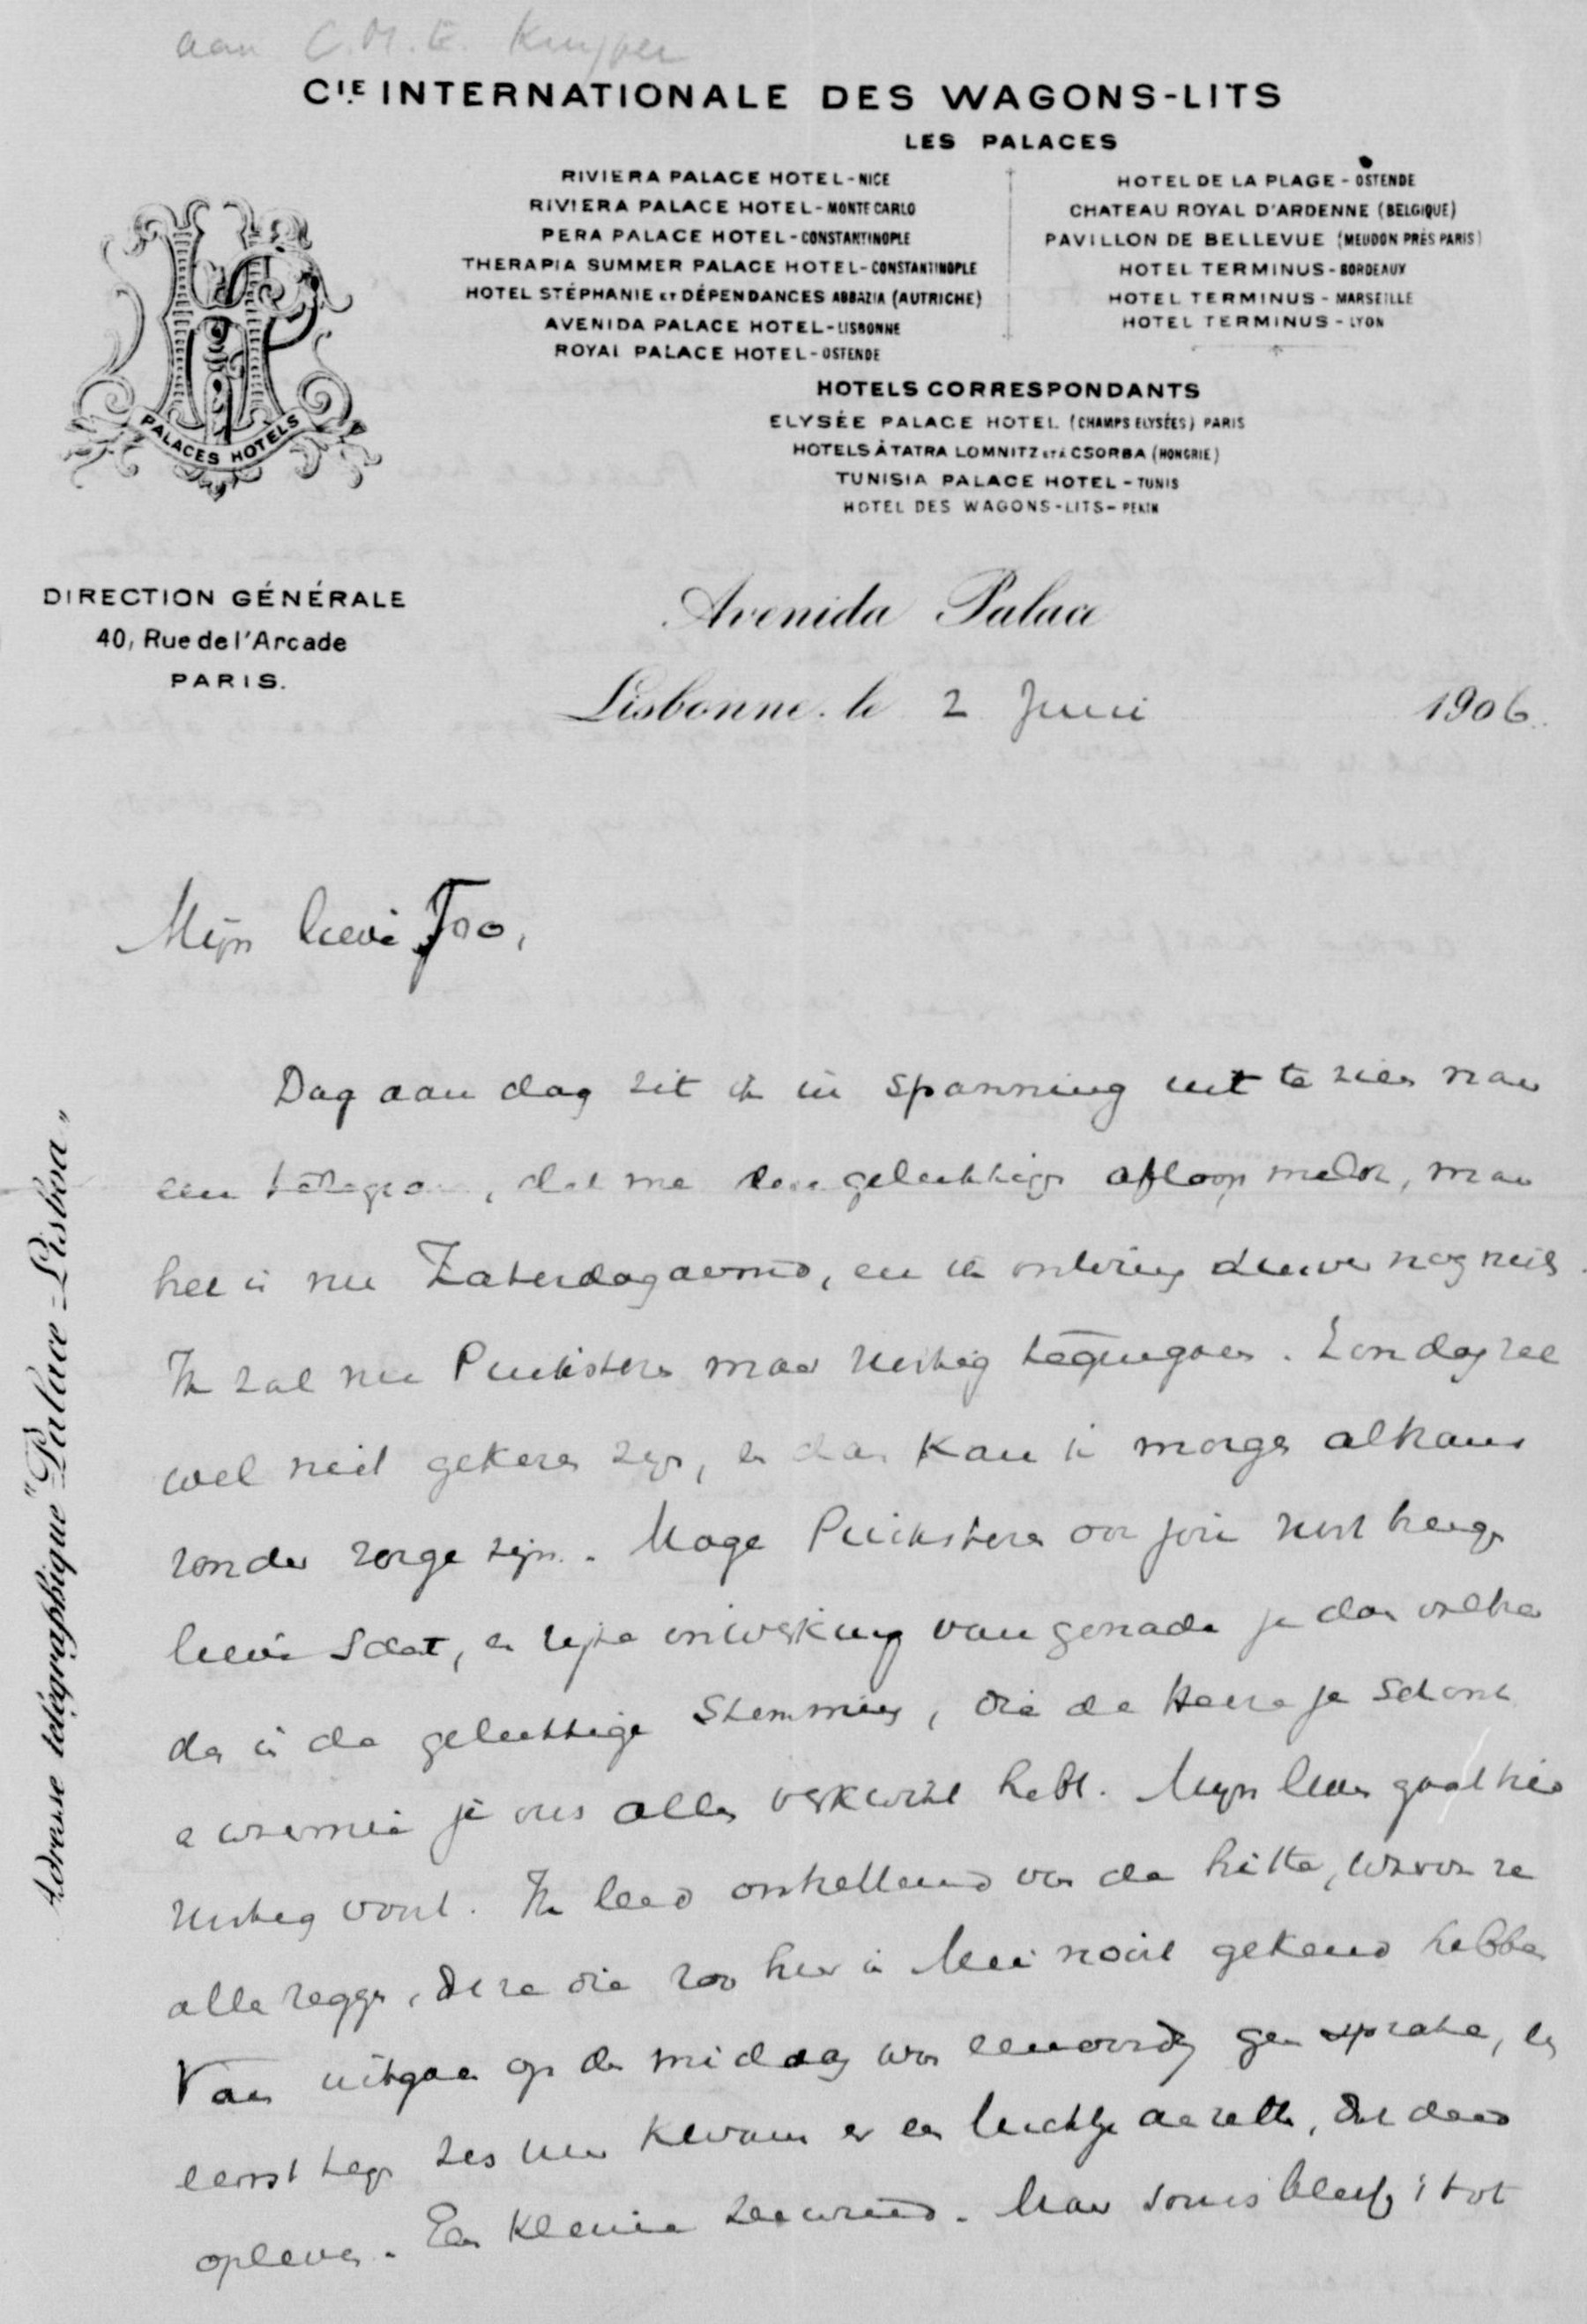 aan C.M.E. Kuyper
CIE INTERNATIONALE DES WAGONS-LITS
LES PALACES
RIVIERA PALACE HOTEL - NICE
RIVIERA PALACE HOTEL - MONTE CARLO
PERA PALACE HOTEL - CONSTANTINOPLE
THERAPIA SUMMER PALACE HOTEL - CONSTANTINOPLE
HOTEL STÉPHANIE ET DÉPENDANCES ABBAZIA (AUTRICHE)
AVENIDA PALACE HOTEL - LISBONNE
ROYAL PALACE HOTEL - OSTENDE
HOTEL DE LA PLAGE - OSTENDE
CHATEAU ROYAL D'ARDENNE (BELGIQUE)
PAVILLON DE BELLEVUE (MEUDON PRÈS PARIS)
HOTEL TERMINUS - BORDEAUX
HOTEL TERMINUS - MARSEILLE
HOTEL TERMINUS - LYON
HOTELS CORRESPONDANTS
ELYSÉE PALACE HOTEL (CHAMPS ELYSÉES) PARIS
HOTELS À TATRA LOMNITZ ET À CSORBA (HONGRIE)
TUNISIA PALACE HOTEL - TUNIS
HOTEL DES WAGONS-LITS - PEKIN
PALACES HOTELS
DIRECTION GÉNÉRALE
40, Rue de l'Arcade
PARIS.
Avenida Palace
Lisbonne, le 2 Juni 1906.
Adresse télégraphique "Palace-Lisboa"
Mijn lieve Joo,
Dag aan dag zit ik in spanning uit te zien naar
een telegram, dat me den gelukkigen afloop meldt, maar
het is nu Zaterdagavond, en ik ontving nog niets.
Ik zal nu Pinksteren maar rustig tegengaan. Zondag zal
wel niet gekozen zijn, en dan kan ik morgen althans
zonder zorge zijn. Moge Pinksteren ook jou rust brengen
lieve Schat, en rijke inwerking van genade je doen
de gelukkige stemming, die de Heere je schonk
en waarmee je ons allen verkwikt hebt. Mijn leven gaat hier
rustig voort. Ik leed ontzettend van de hitte, waarvan ze
alle zeggen, dat ze die zoo hier in Mei nooit gekend hebben
Van uitgaan op den middag was eenvoudig geen sprake, en
eerst tegen zes uur kwam er een luchtje aanzetten, dat deed
opleven. Een kleine zeewind. Maar soms bleef 't tot